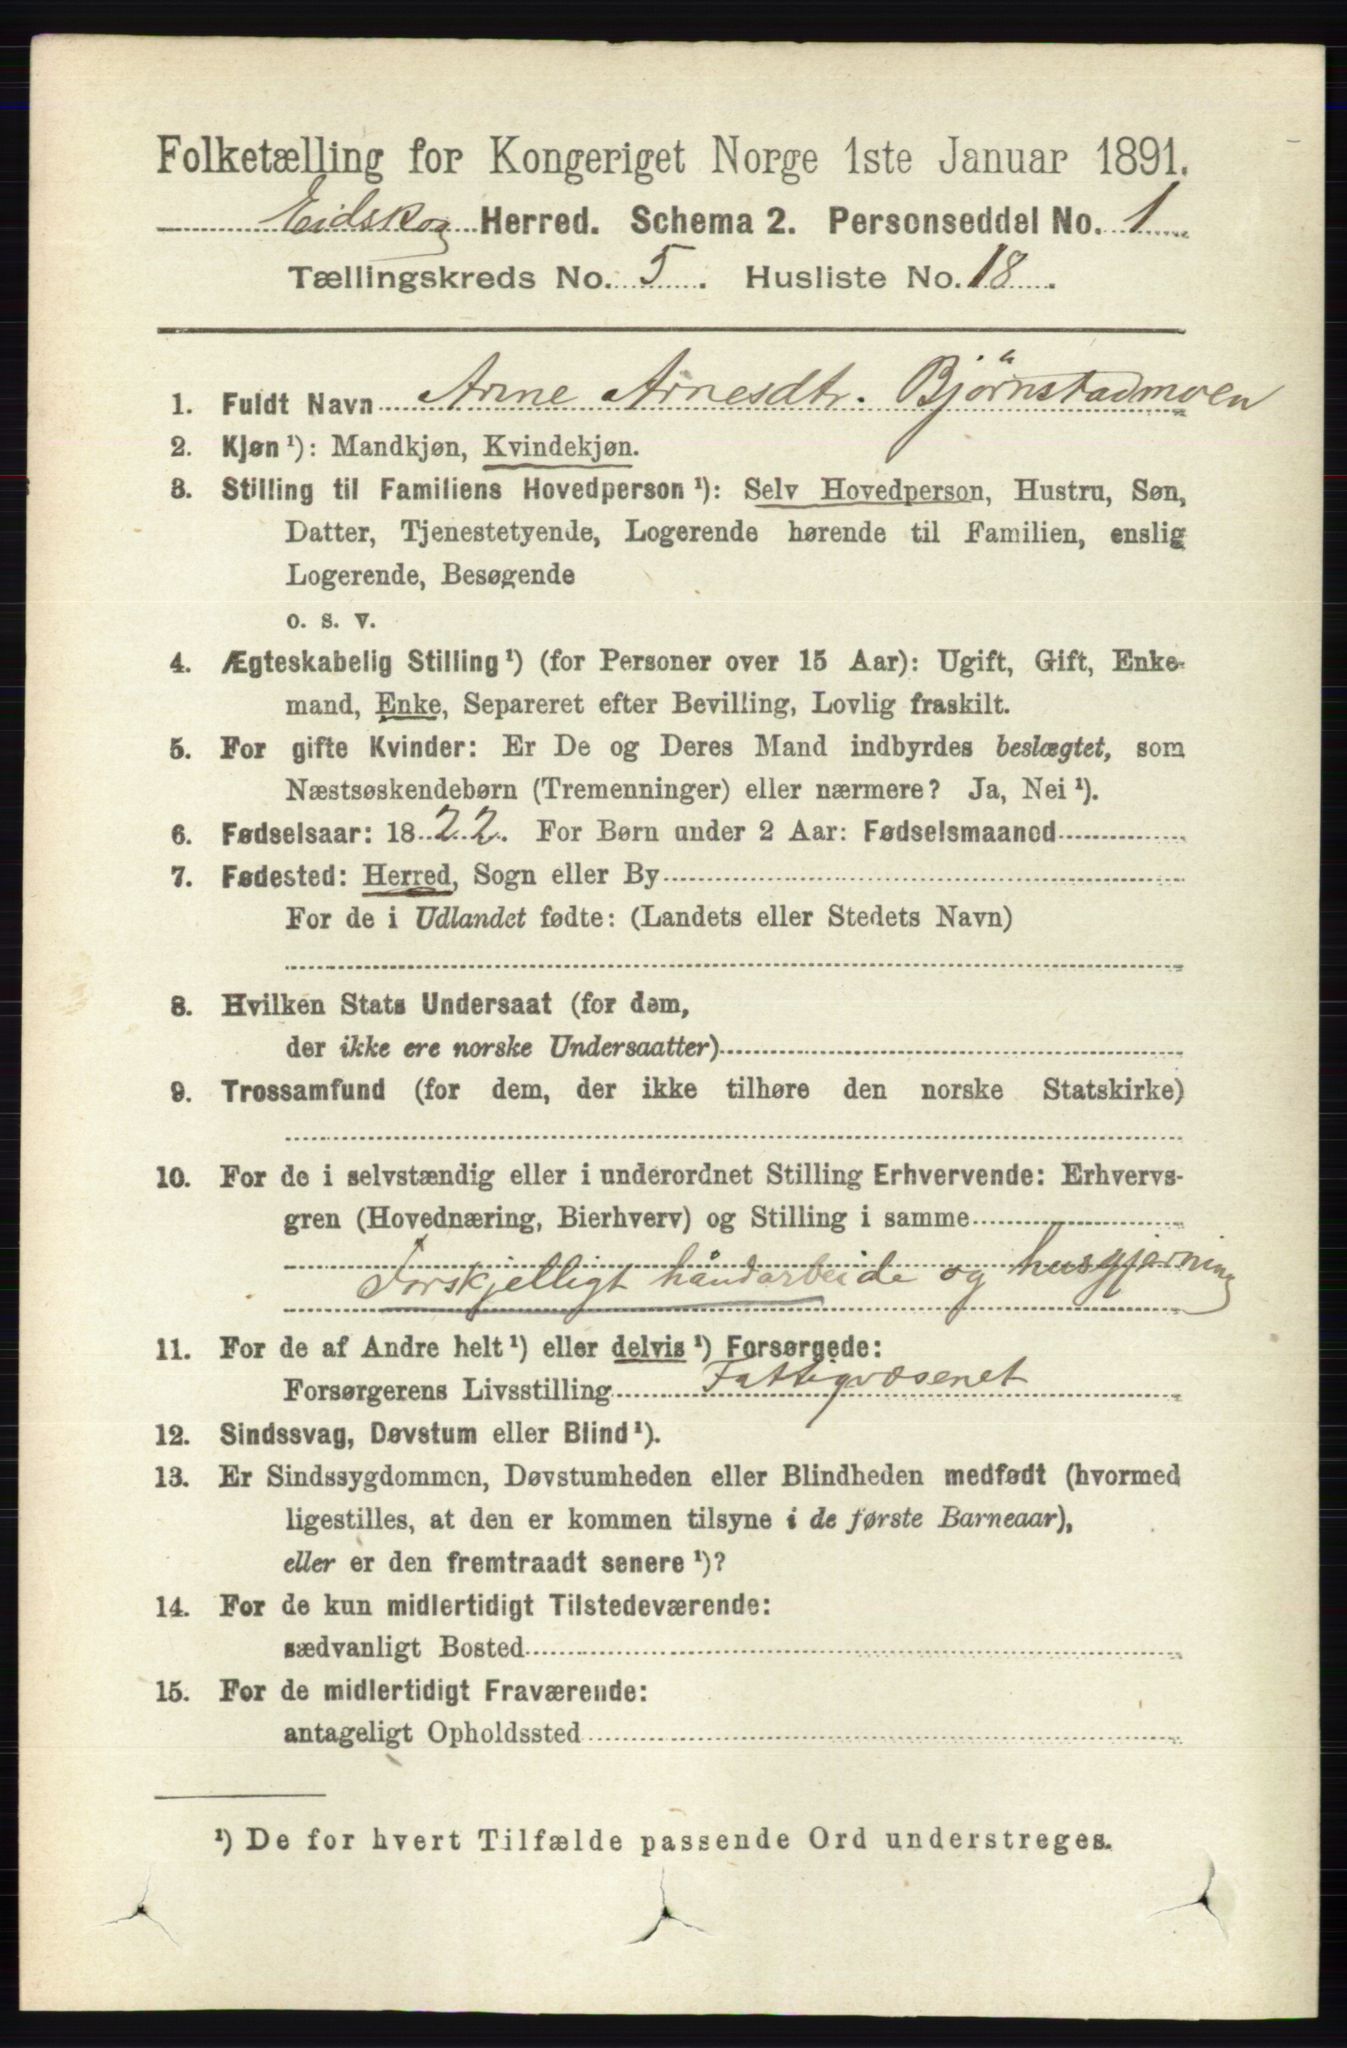 Folketælling for Kongeriget Norge 1ste Januar 1891.
Eidskog Herred. Schema 2. Personseddel No. 1
Tællingskreds No. 5. Husliste No. 18.
1. Fuldt Navn Anne Arnesdtr. Bjørnstadmoen
2. Kjøn ¹): Mandkjøn, Kvindekjøn.
3. Stilling til Familiens Hovedperson ¹): Selv Hovedperson, Hustru, Søn,
Datter, Tjenestetyende, Logerende hørende til Familien, enslig
Logerende, Besøgende
o. s. v.
4. Ægteskabelig Stilling ¹) (for Personer over 15 Aar): Ugift, Gift, Enke-
mand, Enke, Separeret efter Bevilling, Lovlig fraskilt.
5. For gifte Kvinder: Er De og Deres Mand indbyrdes beslægtet, som
Næstsøskendebørn (Tremenninger) eller nærmere? Ja, Nei ¹).
6. Fødselsaar: 1822. For Børn under 2 Aar: Fødselsmaaned
7. Fødested: Herred, Sogn eller By
For de i Udlandet fødte: (Landets eller Stedets Navn)
8. Hvilken Stats Undersaat (for dem,
der ikke ere norske Undersaatter)
9. Trossamfund (for dem, der ikke tilhøre den norske Statskirke)
10. For de i selvstændig eller i underordnet Stilling Erhvervende: Erhvervs-
gren (Hovednæring, Bierhverv) og Stilling i samme
Forskjelligt håndarbeide og husgjerning
11. For de af Andre helt ¹) eller delvis ¹) Forsørgede:
Forsørgerens Livsstilling Fattigvæsenet
12. Sindssvag, Døvstum eller Blind ¹).
13. Er Sindssygdommen, Døvstumheden eller Blindheden medfødt (hvormed
ligestilles, at den er kommen tilsyne i de første Barneaar),
eller er den fremtraadt senere ¹)?
14. For de kun midlertidigt Tilstedeværende:
sædvanligt Bosted
15. For de midlertidigt Fraværende:
antageligt Opholdssted
¹) De for hvert Tilfælde passende Ord understreges.